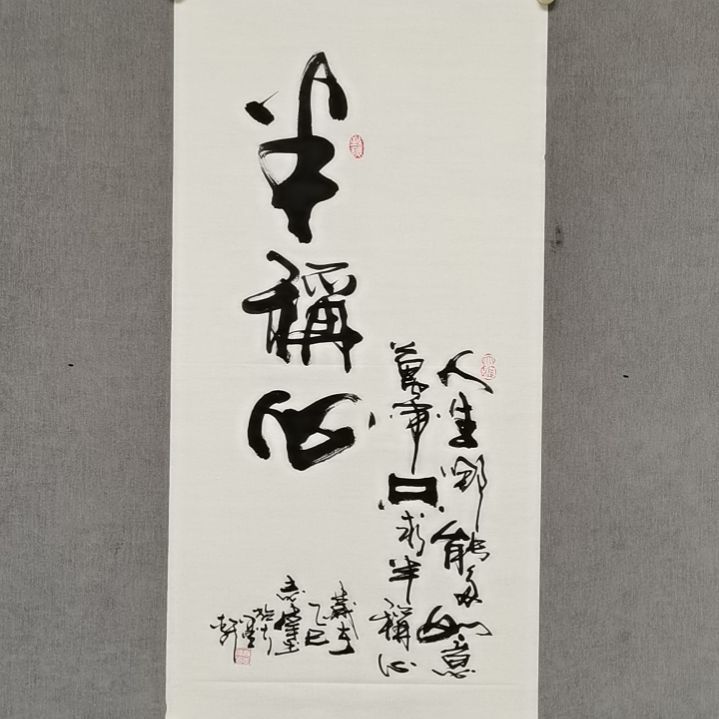 半稱心
人生哪能多如意
萬事只求半稱心
歲在
乙巳